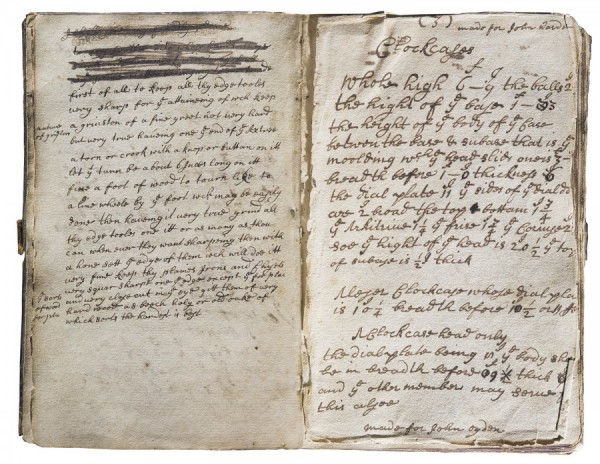 first of all to keep all thy edge tooles
very sharp for yᵉ attaineing of wch keep
a grinston of a fine greet not very hard
but very true haueing one yᵉ end of yᵉ
a torn or crook with a hasp or button on itt
let yᵉ turn be about 6 long on itt
fixe a foot of wood to tourn like to
a line whele by yᵉ foot wch may be easily
done then haveing it very true grind all
thy edge tooles one itt or as many as thou
can when ever they want sharpening then with
a hone sett yᵉ edge of them wch will doe itt
very fine keep thy planes Irons and
very squar sharpt one yᵉ edge except
and very close out gitt them of very
hard wood as beech holy or oake of
which sorts the hardest is best
yᵉ sorts
of wood
for
(3) made for John
Clockcases
Whole high 6 – 9 the balls 2
the hight of yᵉ base 1 –
the height of yᵉ body of yᵉ Case
between the base & subase that is yᵉ
moolding wch yᵉ head slids over is
breadth before 1 – 0 thickness 6
the dial plate 11 yᵉ sides of yᵉ dial
are 2 broad the top & bottom
yᵉ Arkitrive 1 1/4 yᵉ frise 1 1/4 yᵉ
soe yᵉ hight of yᵉ head is 20 1/2 yᵉ top
of subase is 1/2 thick
A Clockcase whose dial pla
is 10 1/4 breadth before 10 1/2 or
A Clockcase head only
the dialplate being 11 yᵉ body
be in breadth before thick
and yᵉ other members may serve
this alsoe
made for John Ogden